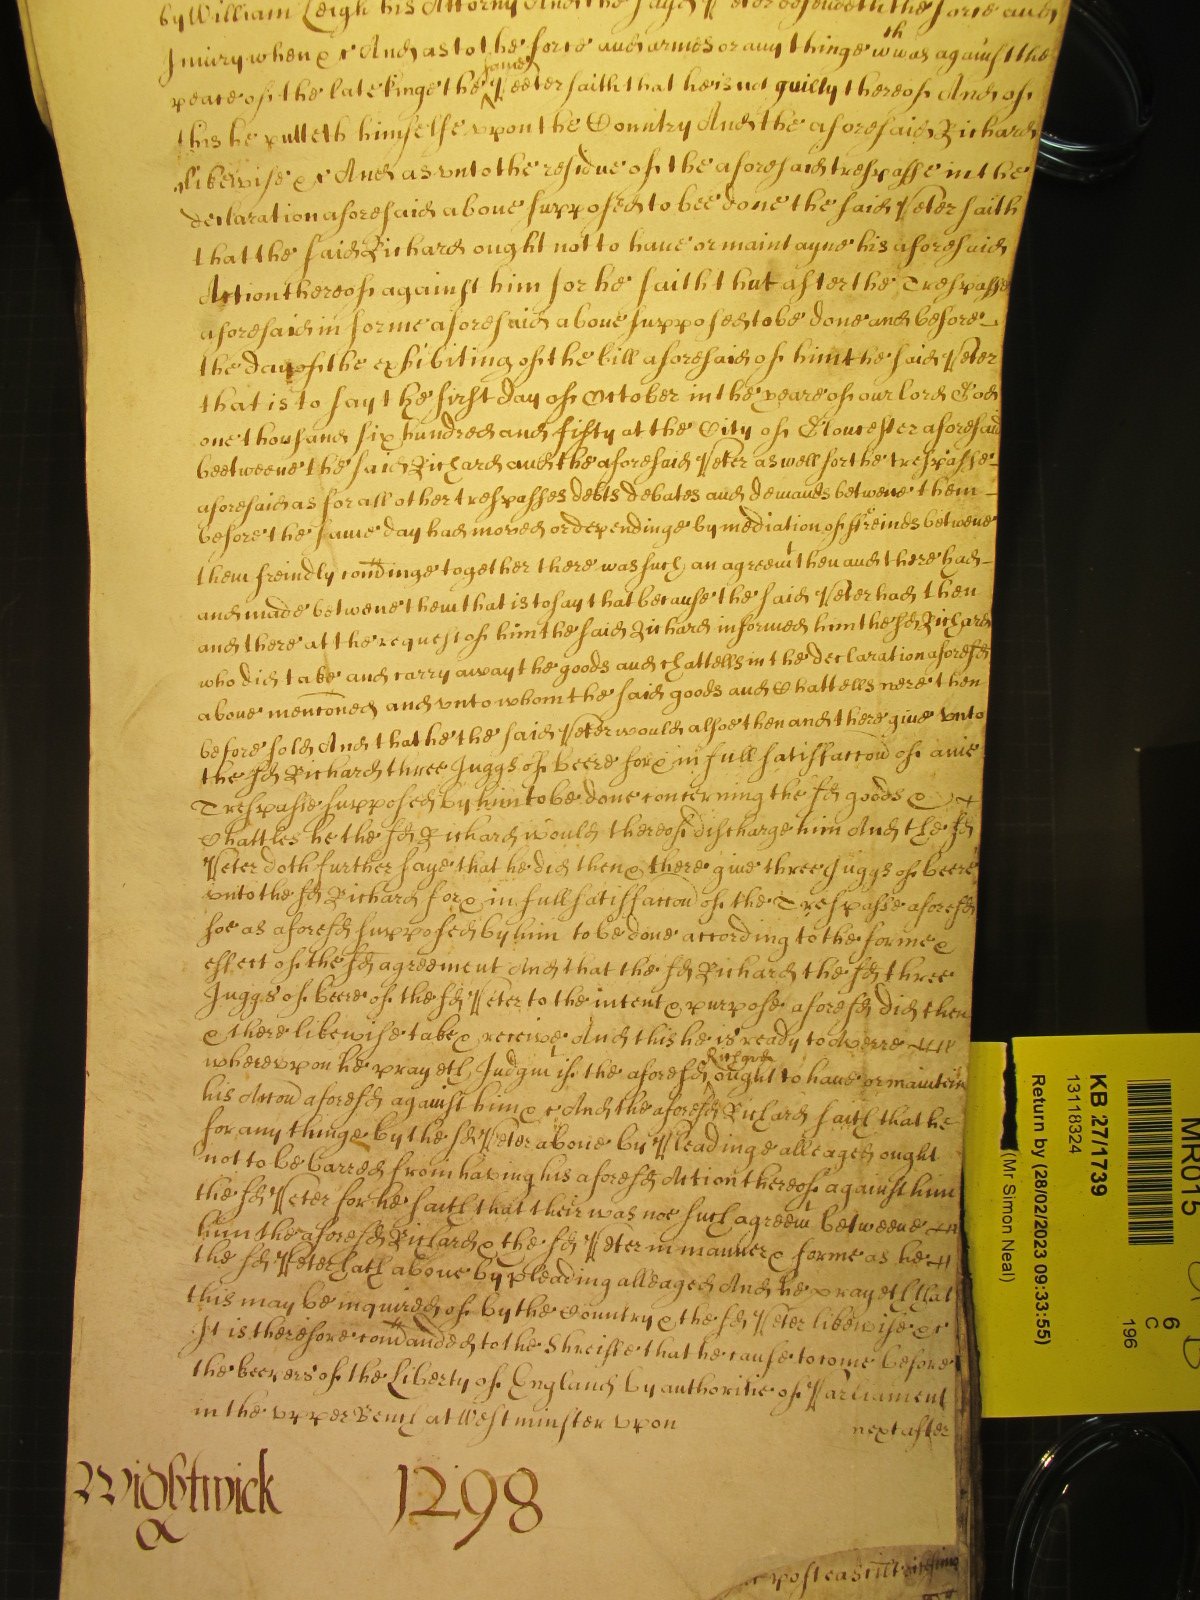 by William Leigh his Attorny And the sayd Peter defendeth the force and
Iniury when &c And as to the force and armes or any thinge wch was against the
peace of the late kinge the same Peeter saith that he is not guilty thereof And of
this he putteth himselfe vpon the Country And the aforesaid Richard
likewise &c And as vnto the residue of the aforesaid trespasse in the
declaration aforesaid aboue supposed to bee done the said Peter saith
that the said Richard ought not to haue or maintayne his aforesaid
Action thereof against him for he saith that after the Trespasse
aforesaid in forme aforesaid aboue supposed to be done and before
the day of the exhibiting of the bill aforesaid of him the said Peter
that is to say the first day of October in the yeare of our lord God
one thousand six hundred and fifty at the City of Gloucester aforesaid
beetweene the said Richard and the aforesaid Peter as well for the trespasse
aforesaid as for all other trespasses debts debates and demands betwene them
before the same day had moved or dependinge by mediation of ffreinds betwene
them freindly comdinge together there was such an agreemt then and there had
and made betwene them that is to say that because the said Peter had then
and there at the request of him the said Richard informed him the sd Richard
who did take and carry away the goods and chattells in the declaration aforesd
aboue menconed and vnto whom the said goods and Chattells were then
before sold And that he the said Peter would alsoe then and there giue vnto
the sd Richard three Juggs of beere for & in full satisfaccon of anie
Trespasse supposed by him to be done concerning the sd goods &
Chattles he the sd Richard would thereof discharge him And the sd
Peter doth further saye that he did then & there giue three Juggs of beere
vnto the sd Richard for & in full satisfaccon of the Trespasse aforesd
soe as aforesd supposed by him to be done according to the forme &
effect of the sd agreement And that the sd Richard the sd three
Juggs of beere of the sd Peter to the intent & purpose aforesd did then
& there likewise take & receive And this he is ready to averre
wherevpon he prayeth Judgmt if the aforesd Richard ought to haue or maintein
his Accon aforesd against him &c And the aforesd Richard saith that he
for any thinge by the sd Peter aboue by Pleadinge alleaged ought
not to be barred from having his aforesd Action thereof against him
the sd Peter for he saith that their was noe such agreemt betweene
him the aforesd Richard & the sd Peter in manner & forme as he
the sd Peter hath aboue by pleading alleaged And he prayeth that
this may be inquired of by the Country & the sd Peter likewise &c
It is therefore comanded to the Shreiffe that he cause to come before
the keepers of the Liberty of England by authoritie of Parliament
in the vpper Bench at Westminster vpon next after
Wightwick 1298
postea scitt
MR015
KB 27/1739
13118324
Return by (28/02/2023 09:33:55)
(Mr Simon Neal)
6
C
196